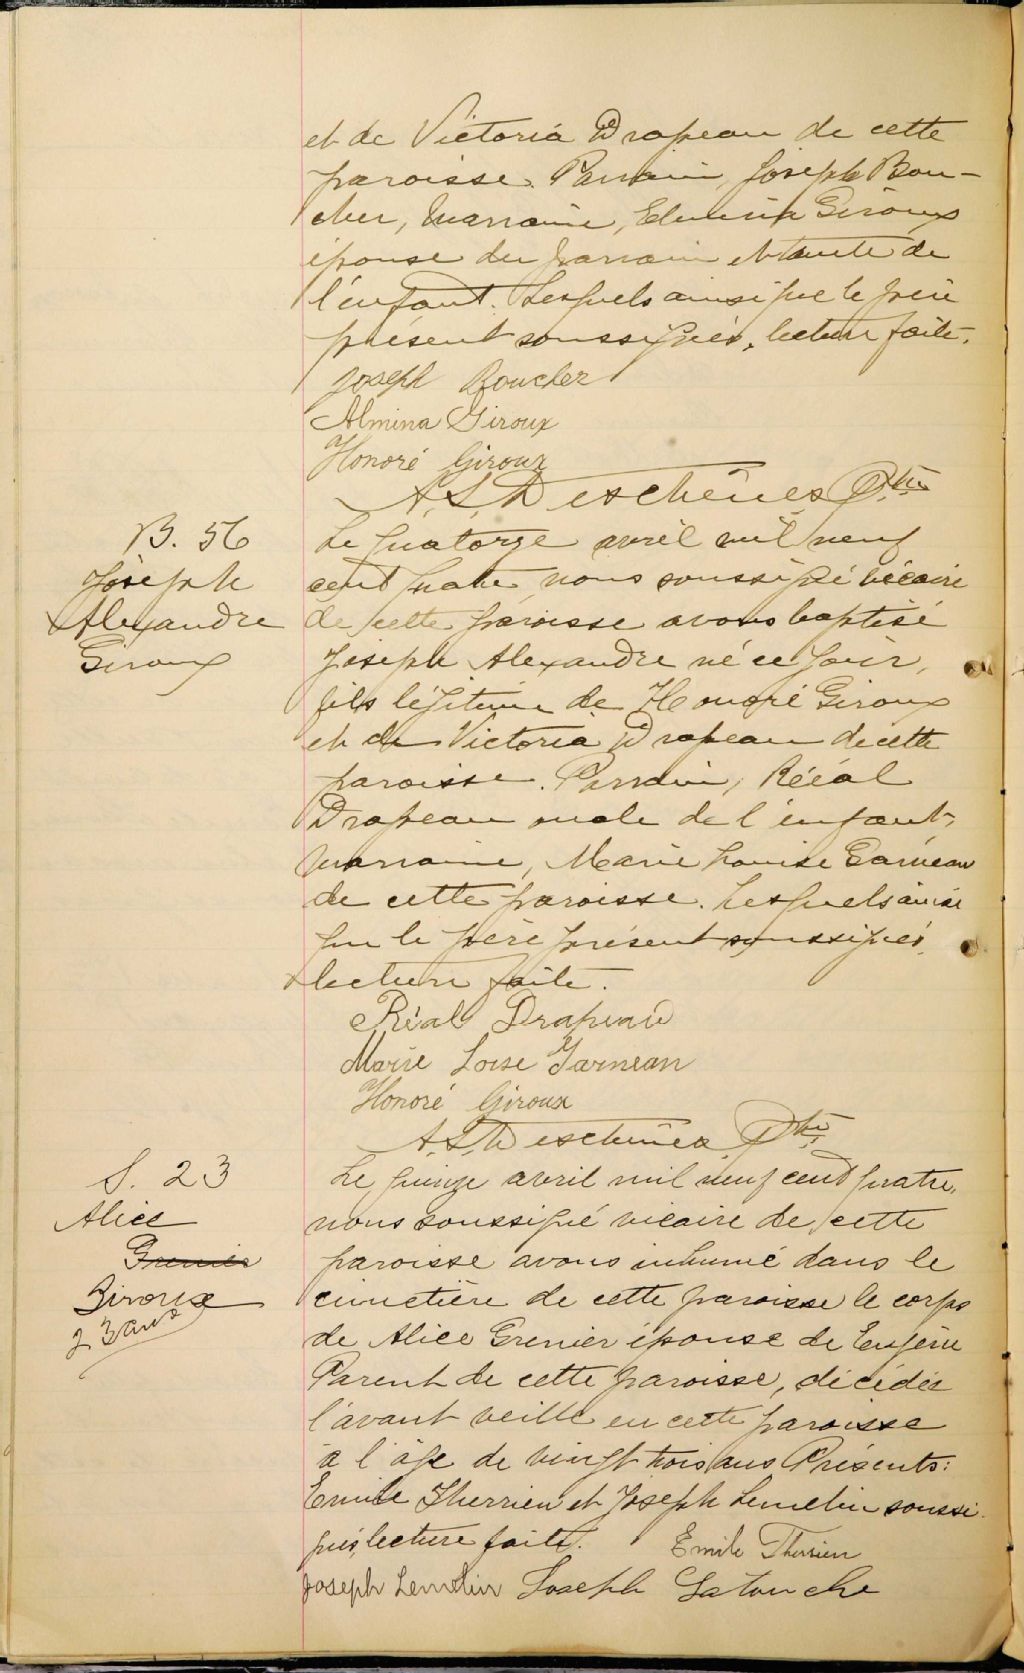 et de Victoria Drapeau de cette
paroisse. Parrain, Joseph Bou-
cher, Marraine, Elmina Giroux
épouse du parrain et tante de
l'enfant. Lesquels ainsi que le père
présent soussignés, lecture faite.
Joseph Boucher
Almina Giroux
Honoré Giroux
A.S. Deschênes Ptre
B. 56
Joseph
Alexandre
Giroux
Le quatorze avril mil neuf
cent quatre nous soussigné vicaire
de cette paroisse avons baptisé
Joseph Alexandre né ce jour,
fils légitime de Honoré Giroux
et de Victoria Drapeau de cette
paroisse. Parrain, Rééal
Drapeau oncle de l'enfant,
marraine, Marie Louise Garneau
de cette paroisse. Lesquels ainsi
que le père présent soussignés,
lecture faite.
Réal Drapeau
Marie Loise Garneau
Honoré Giroux
A.S. Deschênes Ptre
S. 23
Alice
Grenier
Giroux
23 ans
Le quinze avril mil neuf cent quatre,
nous soussigné vicaire de cette
paroisse avons inhumé dans le
cimetière de cette paroisse le corps
de Alice Grenier épouse de Eugène
Parent de cette paroisse, décédée
l'avant veille en cette paroisse
à l'âge de vingt trois ans Présents:
Emile Therrien et Joseph Lemelin soussi-
gnés, lecture faite. Emile Therrien
Joseph Lemelin Joseph Latouche